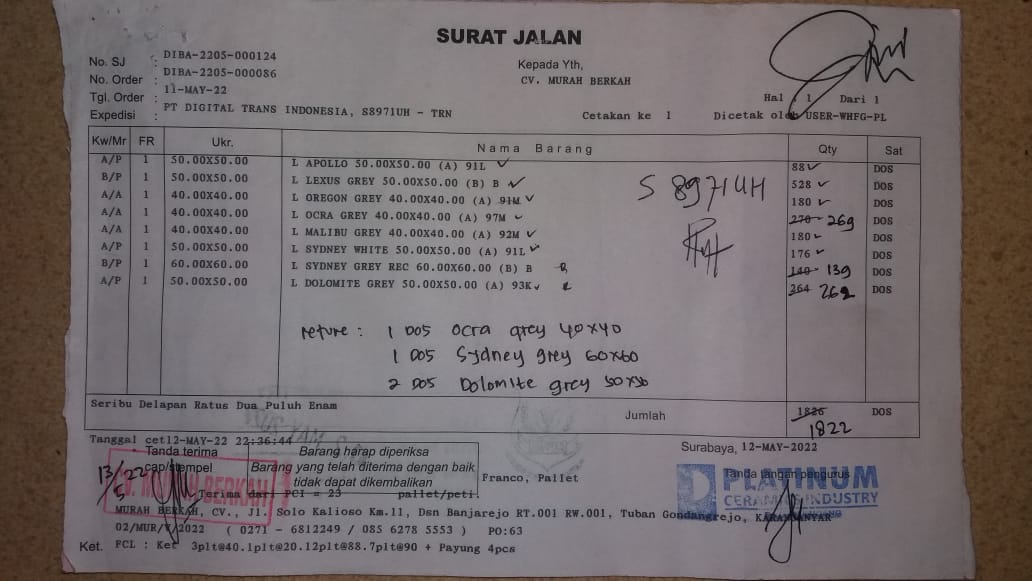 SURAT JALAN
No. SJ : DIBA-2205-000124
No. Order : DIBA-2205-000086
Tgl. Order : 11-MAY-22
Expedisi : PT DIGITAL TRANS INDONESIA, S8971UH - TRN
Kepada Yth,
CV. MURAH BERKAH
Hal : 1 Dari 1
Cetakan ke 1 Dicetak oleh USER-WHFG-PL
Kw/Mr FR Ukr. Nama Barang Qty Sat
A/P 1 50.00X50.00 L APOLLO 50.00X50.00 (A) 91L 88 DOS
B/P 1 50.00X50.00 L LEXUS GREY 50.00X50.00 (B) B 528 DOS
A/A 1 40.00X40.00 L OREGON GREY 40.00X40.00 (A) 91M 180 DOS
A/A 1 40.00X40.00 L OCRA GREY 40.00X40.00 (A) 97M 270 269 DOS
A/A 1 40.00X40.00 L MALIBU GREY 40.00X40.00 (A) 92M 180 DOS
A/P 1 50.00X50.00 L SYDNEY WHITE 50.00X50.00 (A) 91L 176 DOS
B/P 1 60.00X60.00 L SYDNEY GREY REC 60.00X60.00 (B) B 140 139 DOS
A/P 1 50.00X50.00 L DOLOMITE GREY 50.00X50.00 (A) 93K 264 262 DOS
S 8971UH
reture : 1 DOS Ocra grey 40x40
1 DOS Sydney grey 60x60
2 DOS Dolomite grey 50x50
Seribu Delapan Ratus Dua Puluh Enam
Jumlah 1826 DOS
1822
Tanggal cet12-MAY-22 22:36:44
Surabaya, 12-MAY-2022
Tanda terima
cap/stempel
13/5 22
Barang harap diperiksa
Barang yang telah diterima dengan baik
tidak dapat dikembalikan
Tanda tangan pengurus
PLATINUM
CERAMICS INDUSTRY
Franco, Pallet
MURAH BERKAH
Terima dari PCI = 23 pallet/peti.
MURAH BERKAH, CV., Jl. Solo Kalioso Km.11, Dsn Banjarejo RT.001 RW.001, Tuban Gondangrejo, KARANGANYAR
02/MUR/V/2022 ( 0271 - 6812249 / 085 6278 5553 ) PO:63
Ket. FCL : Ket 3plt@40.1plt@20.12plt@88.7plt@90 + Payung 4pcs